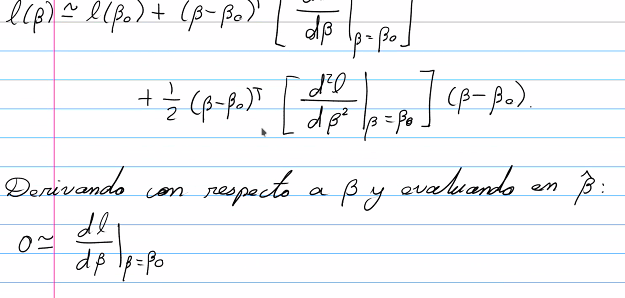 l(β) ≃ l(β₀) + (β-β₀)ᵀ [ dl/dβ |β=β₀ ]
+ 1/2 (β-β₀)ᵀ [ d²l/dβ² |β=β₀ ] (β-β₀).
Derivando con respecto a β y evaluando en β̂:
0 ≃ dl/dβ |β=β₀